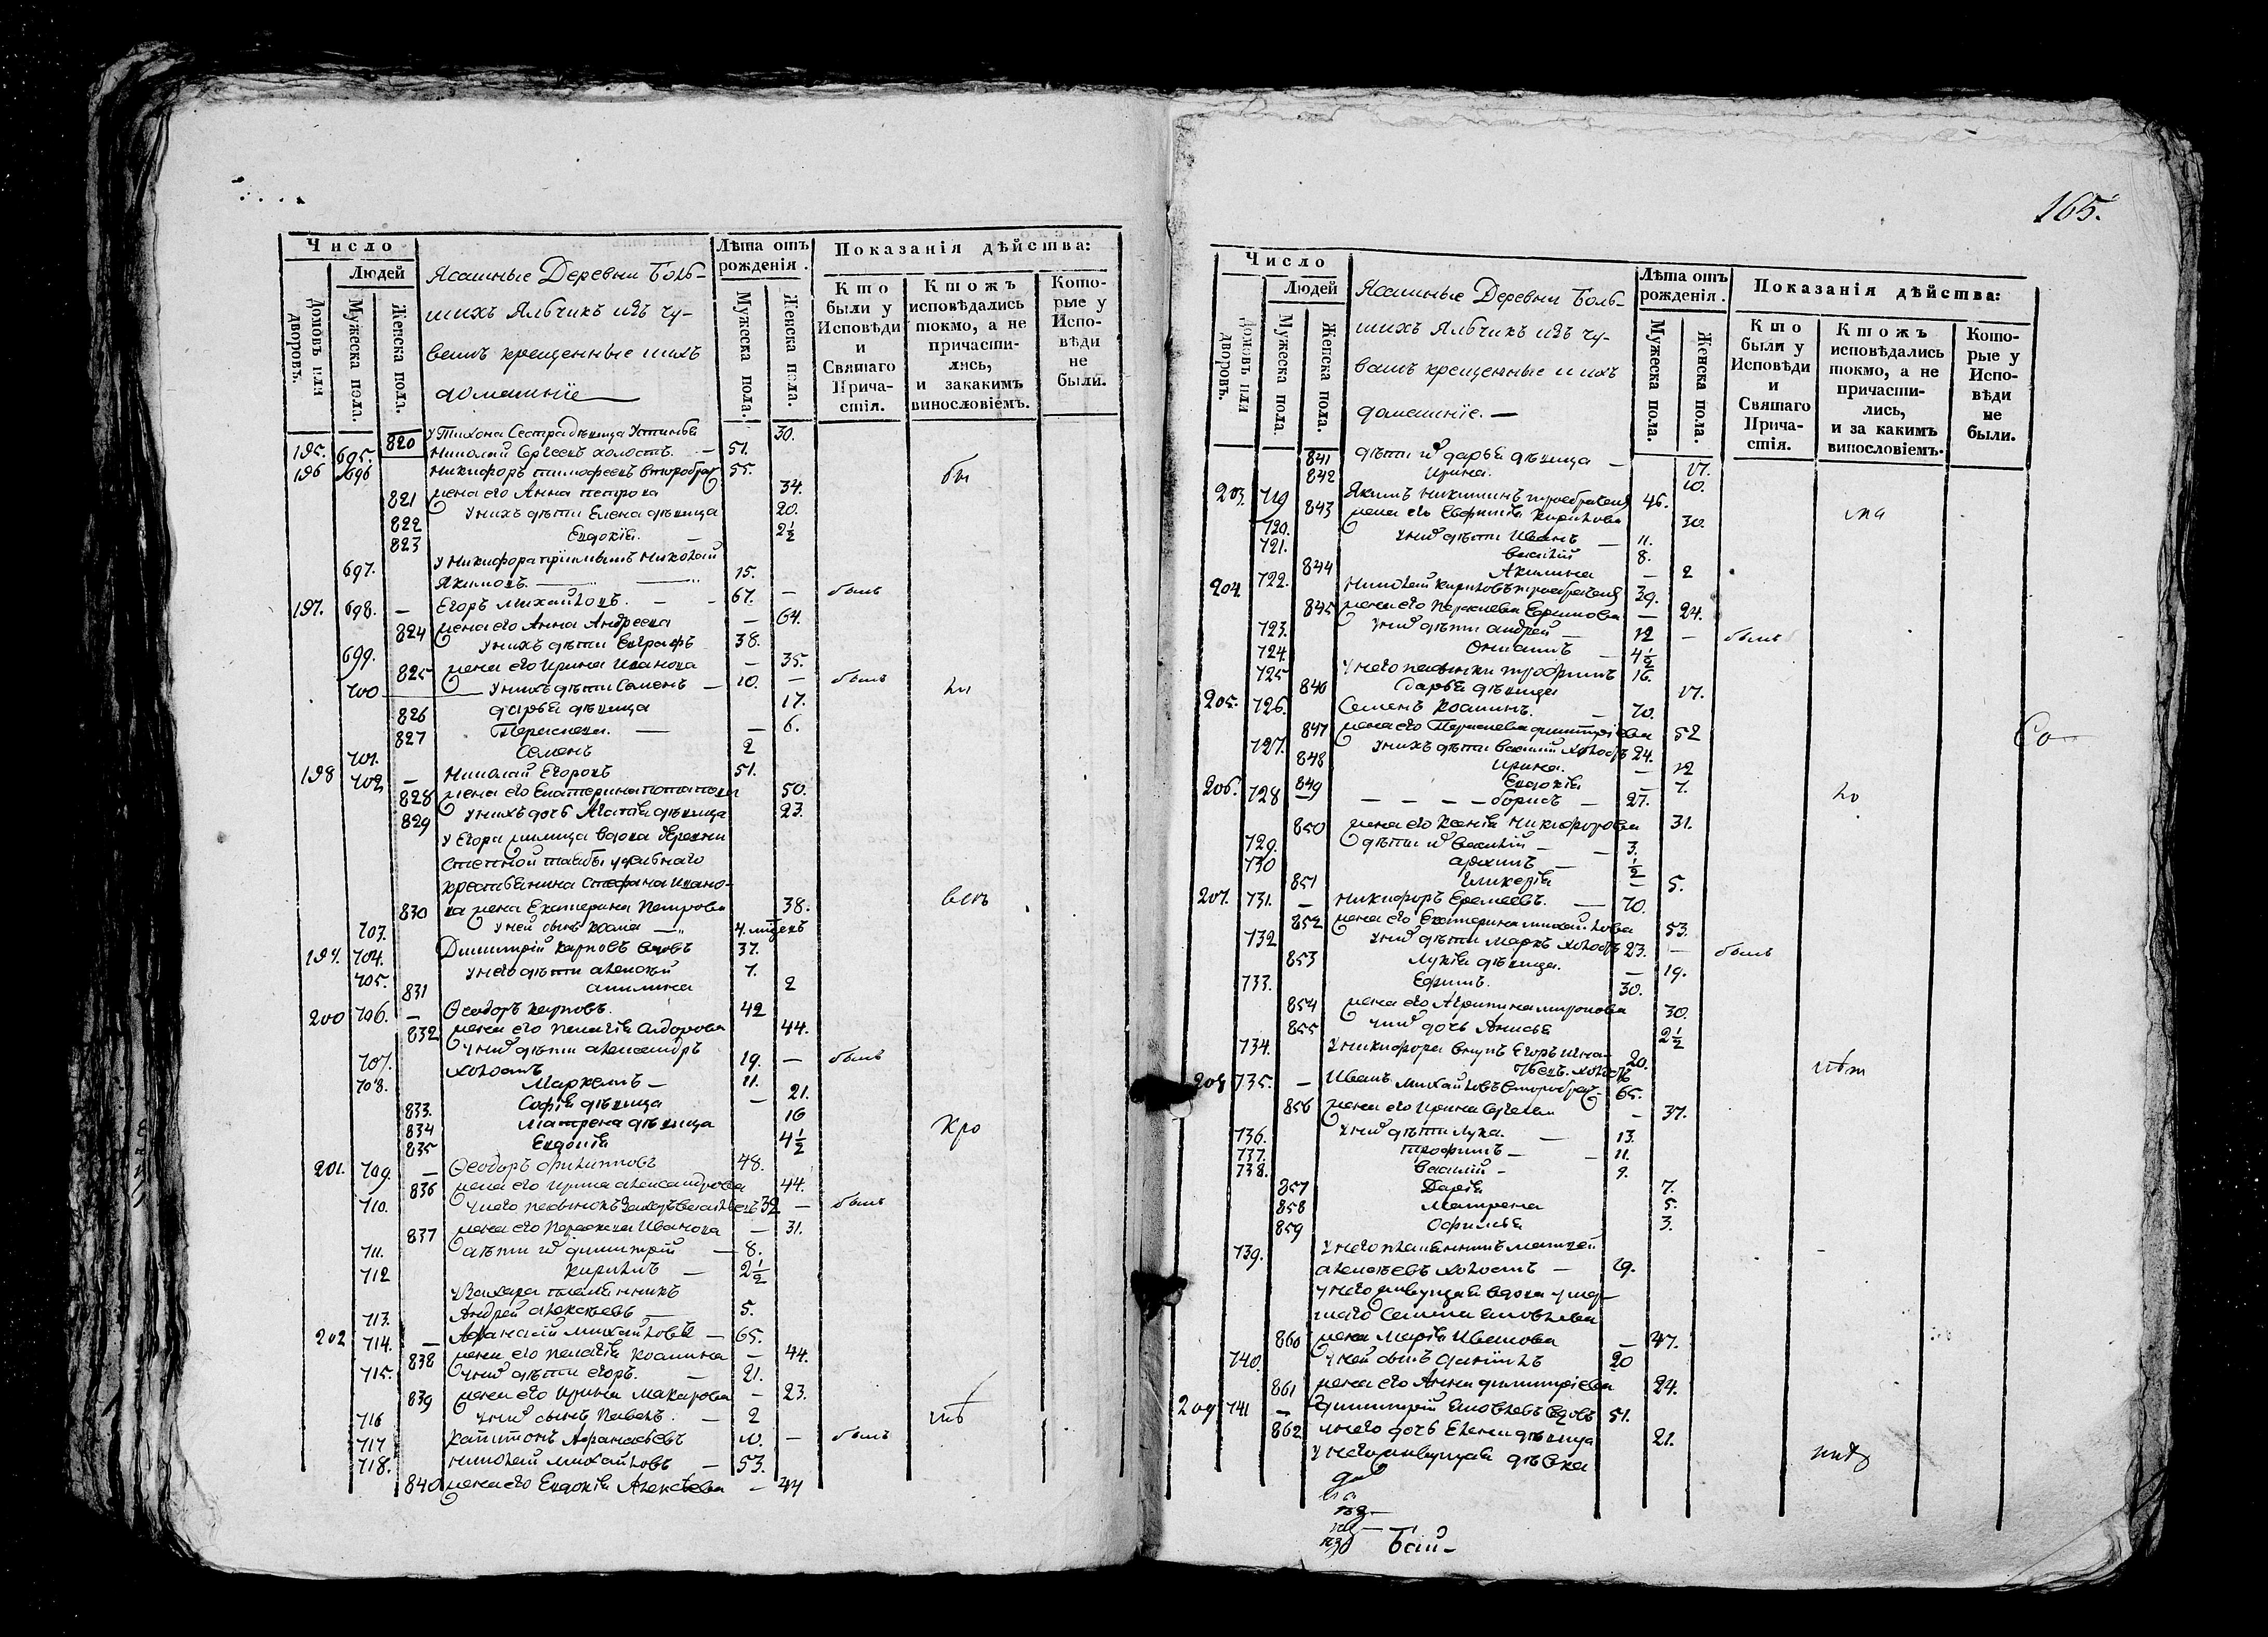 165.
Число
Людей
Домовъ или дворовъ.
Мужеска пола.
Женска пола.
Ясашные Деревни Боль-
шихъ Яльчикъ изъ чу-
вашъ крещенные и ихъ
домашніе
Лѣта отъ рожденія.
Мужеска пола.
Женска пола.
Показанія дѣйства:
Кто были у Исповѣди и Святаго Прича-стія.
Ктожъ исповѣдались токмо, а не причасти-лись, и закакимъ винословіемъ.
Кото-рые у Испо-вѣди не были.
820 у Тихона Сестра дѣвица Устинья 30.
195. 695. Николай Сергеевъ холостъ. 51.
196 696 Никифоръ Тимофеевъ второбрач 55.
821 жена его Анна Петрова 34.
822 у нихъ дѣти Елена дѣвица 20.
823 Евдокія. 2½
у Никифора пріимышъ Николай
697. Якимовъ. 15.
197. 698. Егоръ Михайловъ. 67. былъ
824 жена его Анна Андреева 64.
699. у нихъ дѣти Евграфъ 38.
825 жена его Ирина Иванова 35.
700 у нихъ дѣти Семенъ 10. былъ
826 Дарья дѣвица 17.
827 Парасковья. 6.
701. Семенъ 2
198 702 Николай Егоровъ 51.
828 жена его Екатерина Потапова 50.
829 у нихъ дочь Агафія дѣвица 23.
у Егора жилица вдова деревни
крестьянина Стефана Ивано-
830 ва жена Екатерина Петрова 38.
703. у ней сынъ Козма 4. мѣсецъ
199. 704. Димитрій Карповъ вдовъ 37.
705. у него дѣти Алексѣй 7.
831 Акилина 2
200 706. Ѳеодоръ Карповъ. 42
832 жена его Пелагія Сидорова 44.
у них дѣти Александръ
707. холостъ 19. былъ
708. Маркелъ 11.
833. Софія дѣвица 21.
834 Матрена дѣвица 16
835 Евдокія 4½
201. 709. Ѳеодоръ Филипповъ 48.
836 жена его Ирина Александрова 44.
710. у него пасынокъ Захаръ Васильевъ 32 былъ
837 жена его Парасковья Иванова 31.
711. дѣти их Димитрій 8.
712 Кирилъ 2½
у Захара племянникъ
713. Андрей Алексѣевъ 5.
202 714. Афанасій Михайловъ 65.
838 жена его Пелагія Козмина 44.
715. у них дѣти Егоръ. 21.
839 жена его Ирина Макарова 23.
716 у них сынъ Павелъ. 2
717 Капитонъ Афанасьевъ 10. былъ
718. Николай Михайловъ 53.
840 жена его Евдокія Алексѣева 44
Число
Людей
Домовъ или дворовъ.
Мужеска пола.
Женска пола.
Ясашные Деревни Боль-
шихъ Яльчикъ изъ чу-
вашъ крещенные и ихъ
домашніе.
Лѣта отъ рожденія.
Мужеска пола.
Женска пола.
Показанія дѣйства:
Кто были у Исповѣди и Святаго Прича-стія.
Ктожъ исповѣдались токмо, а не причасти-лись, и за какимъ винословіемъ.
Кото-рые у Испо-вѣди не были.
841 дѣти их Дарья дѣвица 17.
842 Ирина. 10.
203. 719 Якимъ Никитинъ троебрачен 46.
843 жена его Евфимія Кирилова 30.
720. у них дѣти Иванъ 11.
721. Василій 8.
844 Акилина 2
204. 722. Николай Кириловъ троебрачен 39.
845 жена его Парасковья Ефимова 24.
723. у них дѣти Андрей 12 былъ
724. 4½
725 у него пасынки Трофимъ 16.
846 Дарья дѣвица 17.
205. 726. Семенъ Козминъ. 70.
847 жена его Парасковья Димитріева 52
727. у нихъ дѣти Василій холостъ 24.
848 Ирина. 12
849 Евдокія 7.
206. 728 Борисъ 27.
850 жена его Ксенія Никифорова 31.
729. дѣти их Василій 3.
730 ½
851 Гликерія 5.
207. 731. Никифоръ Еремеевъ. 70.
852 жена его Екатерина Михайлова 53.
732 у них дѣти Маркъ холостъ 23. былъ
853 Лукія дѣвица. 19.
733. Ефимъ. 30.
854 жена его Агрипина Миронова 30.
855 у них дочь Анисья 2½
734. у Никифора внукъ Егоръ Игна-
тьевъ холостъ 20.
208 735. Иванъ Михайловъ второбрач. 65.
856 жена его Ирина Сергеева 37.
736. у них дѣти Лука. 13.
737. Трофимъ 11.
738. Василій 9.
857 Дарія 7.
858 Матрена 5.
859 Офимья 3.
739. у него племянникъ Матвей
Алексѣевъ холостъ 19.
у него живущая вдова умер-
шаго Семена Яковлева
860 жена Марія Иванова 47.
740. у ней сынъ Даніилъ 20
861 жена его Анна Димитріева 24.
209 741 Димитрій Яковлевъ вдовъ 51.
862 у него дочь Елена дѣвица 21.
у него живущая дѣвка